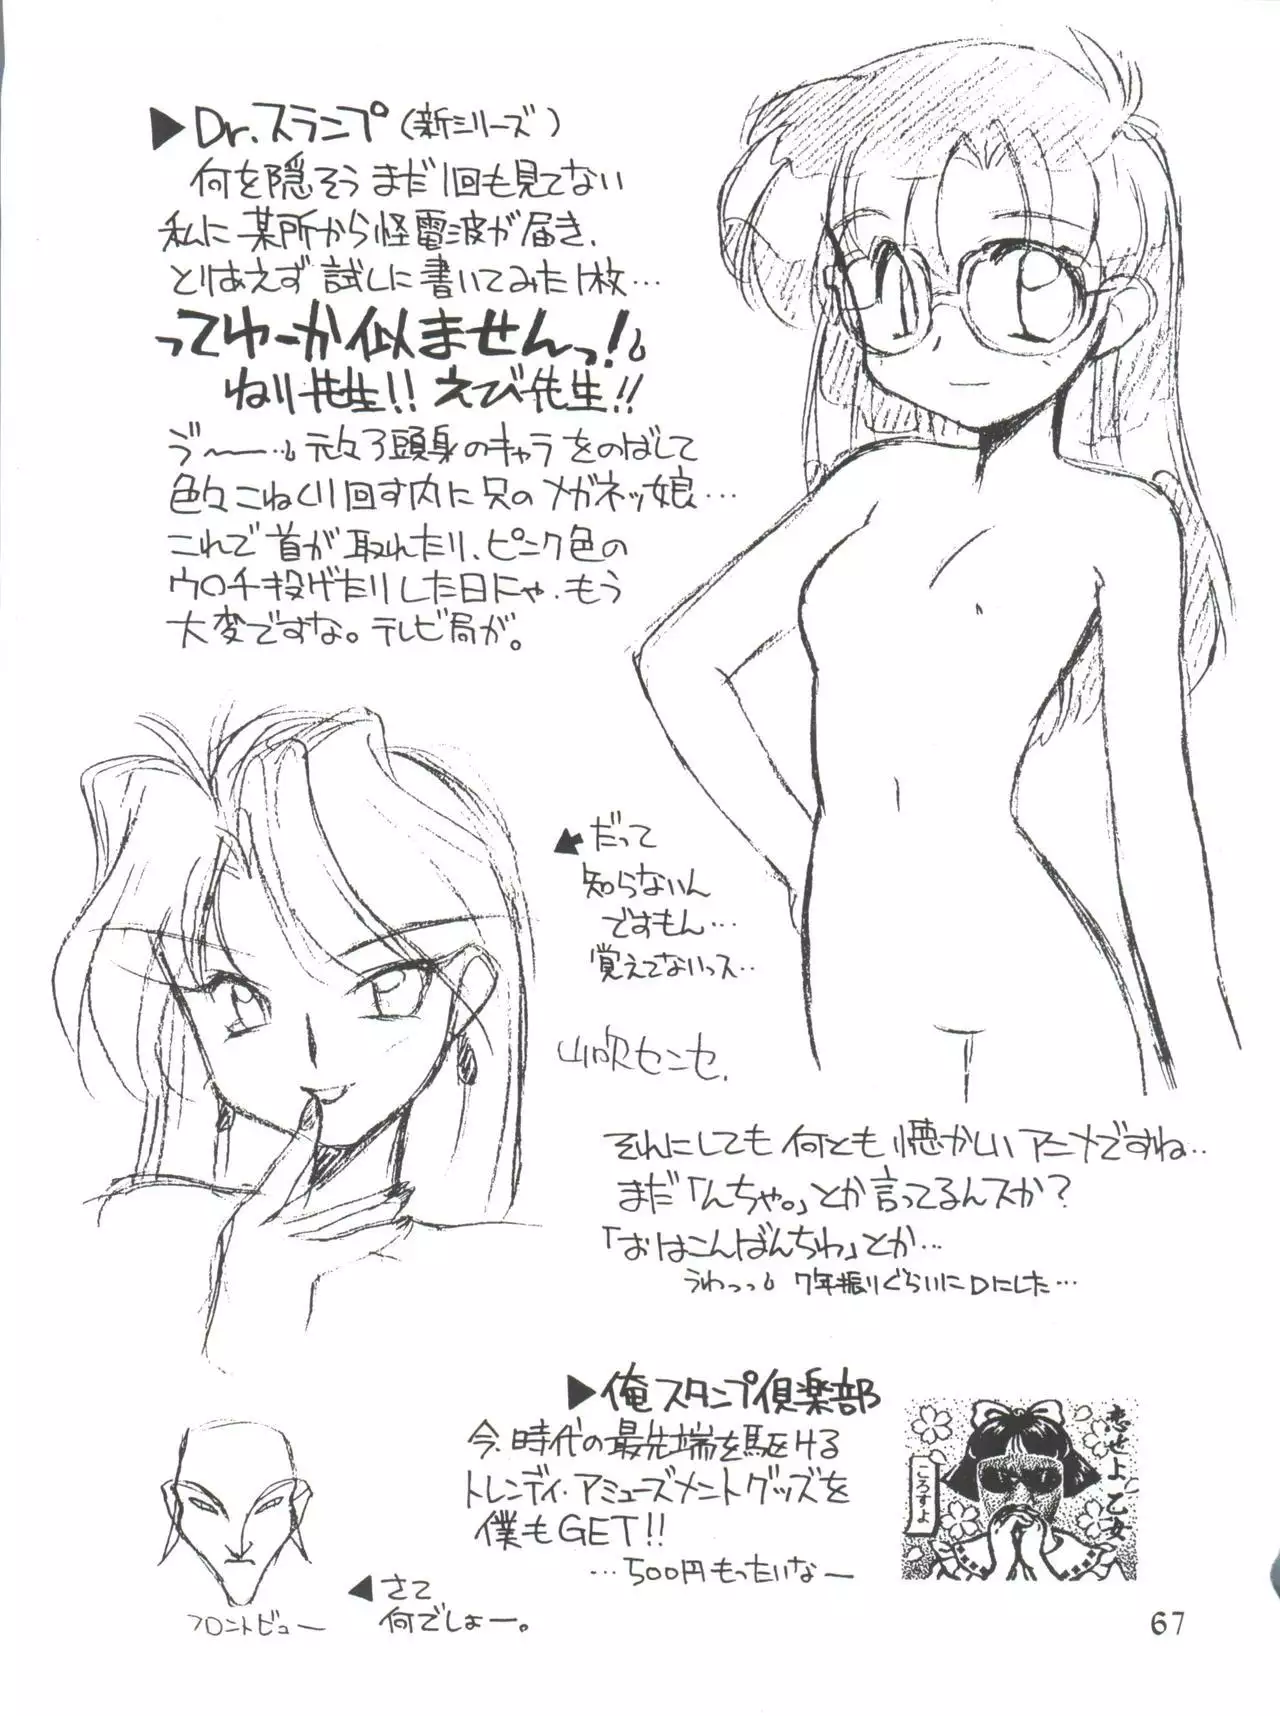 ▶Dr.スランプ(新シリーズ)
何を隠そうまだ1回も見てない
私に某所から怪電波が届き、
とりあえず試しに書いてみた1枚…
ってゆーか似ませんっ!
ねり先生!!えび先生!!
元々3頭身のキャラをのばして
色々こねくり回す内に只のメガネッ娘…
これで首が取れたり、ピンク色の
ウロチ投げたりした日にゃ、もう
大変ですな。テレビ局が。
だって
知らないん
ですもん…
覚えてないっス..
山吹センセ.
それにしても何とも懐かしいアニメですね..
まだ「んちゃ。」とか言ってるんスか?
「おはこんばんちわ」とか…
うわっっ 7年振りぐらいにDにした…
▶俺スタンプ倶楽部
今、時代の最先端を駆ける
トレンディ・アミューズメントグッズを
僕もGET!!
…500円もったいなー
恋せよ乙女
ころすよ
◀さて
何でしょー。
フロントビュー
67